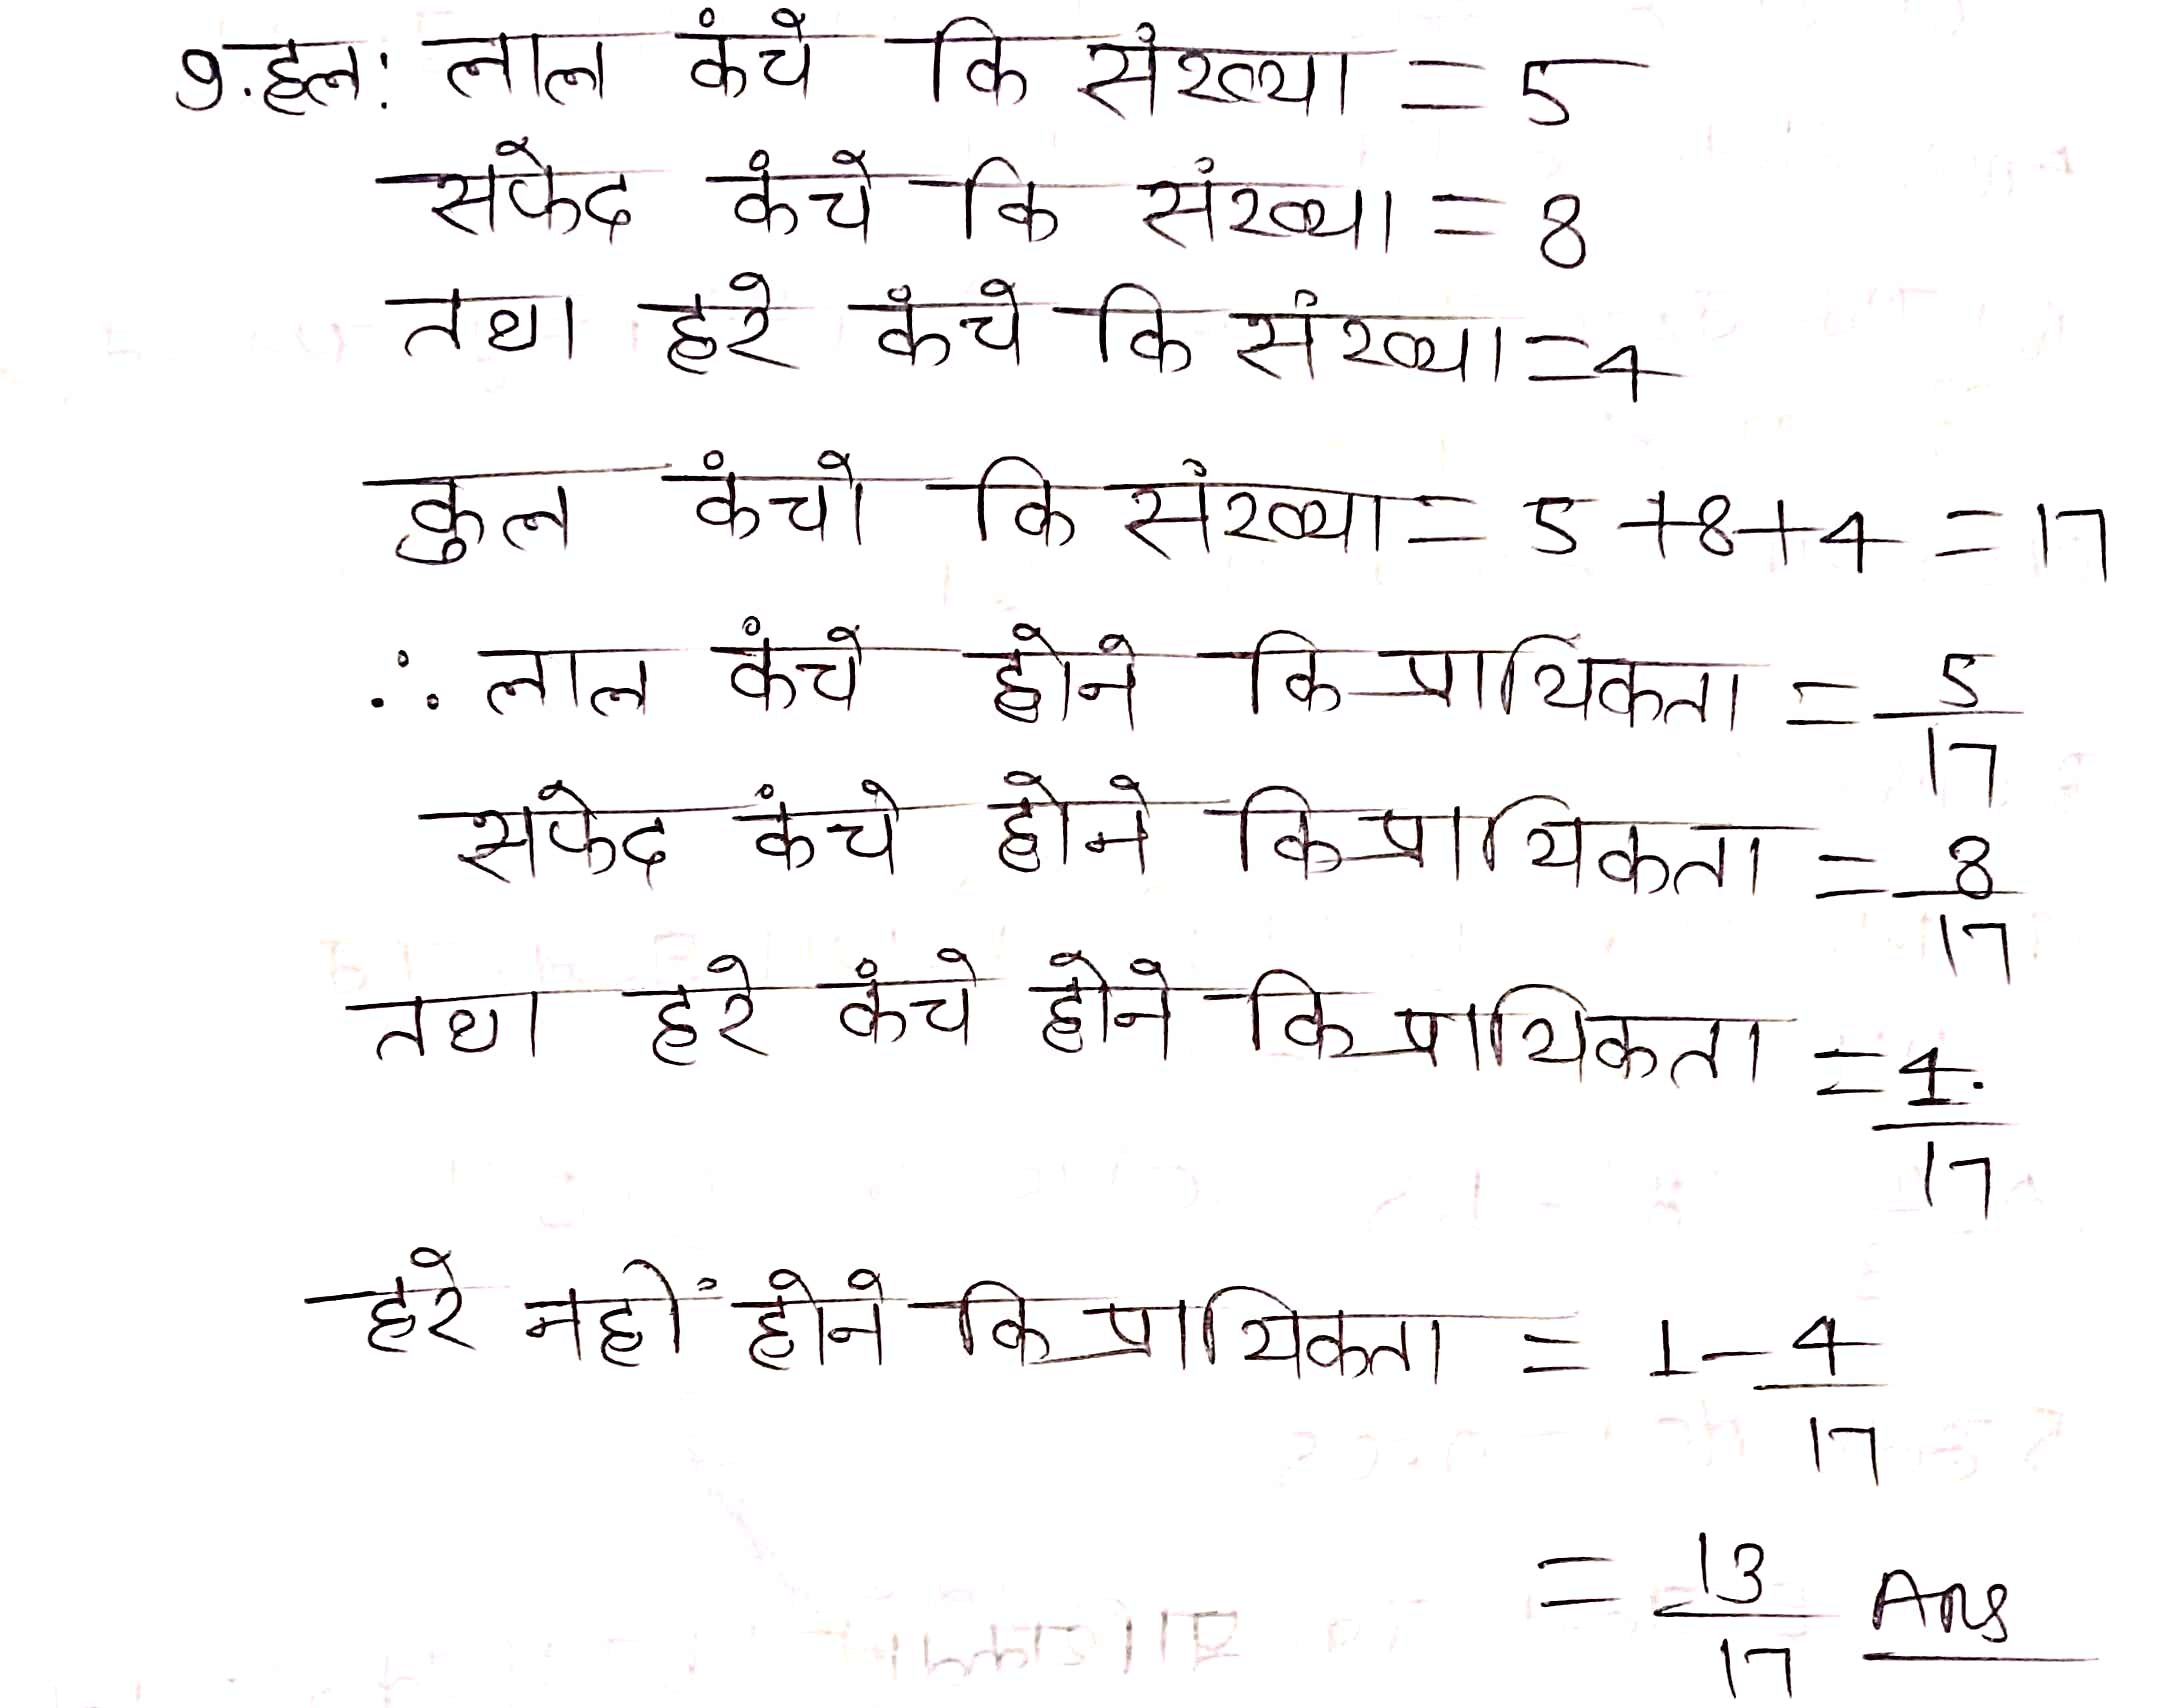 9.हल: लाल कंचे कि संख्या = 5
सफेद कंचे कि संख्या = 8
तथा हरे कंचे कि संख्या = 4
कुल कंचो कि संख्या = 5 + 8 + 4 = 17
∴ लाल कंचे होने कि प्रायिकता = 5/17
सफेद कंचे होने कि प्रायिकता = 8/17
तथा हरे कंचे होने कि प्रायिकता = 4/17
हरे नहीं होने कि प्रायिकता = 1 - 4/17
= 13/17 Ans